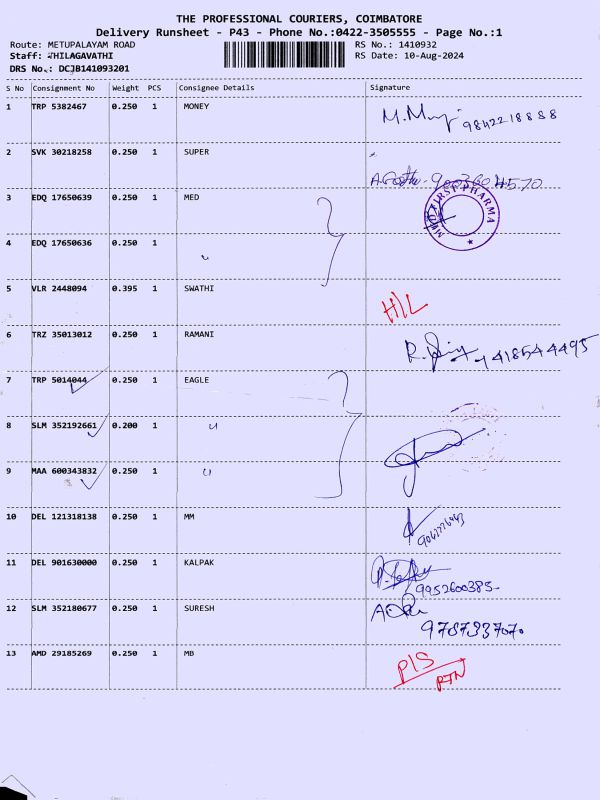 THE PROFESSIONAL COURIERS, COIMBATORE
Delivery Runsheet - P43 - Phone No.:0422-3505555 - Page No.:1
Route: METUPALAYAM ROAD RS No.: 1410932
Staff: THILAGAVATHI RS Date: 10-Aug-2024
DRS No.: DCJB141093201
S No Consignment No Weight PCS Consignee Details Signature
1 TRP 5382467 0.250 1 MONEY 9842218888
2 SVK 30218258 0.250 1 SUPER
3 EDQ 17650639 0.250 1 MED FIRST PHARMA
4 EDQ 17650636 0.250 1
5 VLR 2448094 0.395 1 SWATHI H/L
6 TRZ 35013012 0.250 1 RAMANI
7 TRP 5014044 0.250 1 EAGLE
8 SLM 352192661 0.200 1 u
9 MAA 600343832 0.250 1 u
10 DEL 121318138 0.250 1 MM
11 DEL 901630000 0.250 1 KALPAK 9952600385
12 SLM 352180677 0.250 1 SURESH
13 AMD 29185269 0.250 1 MB P/S
RTN